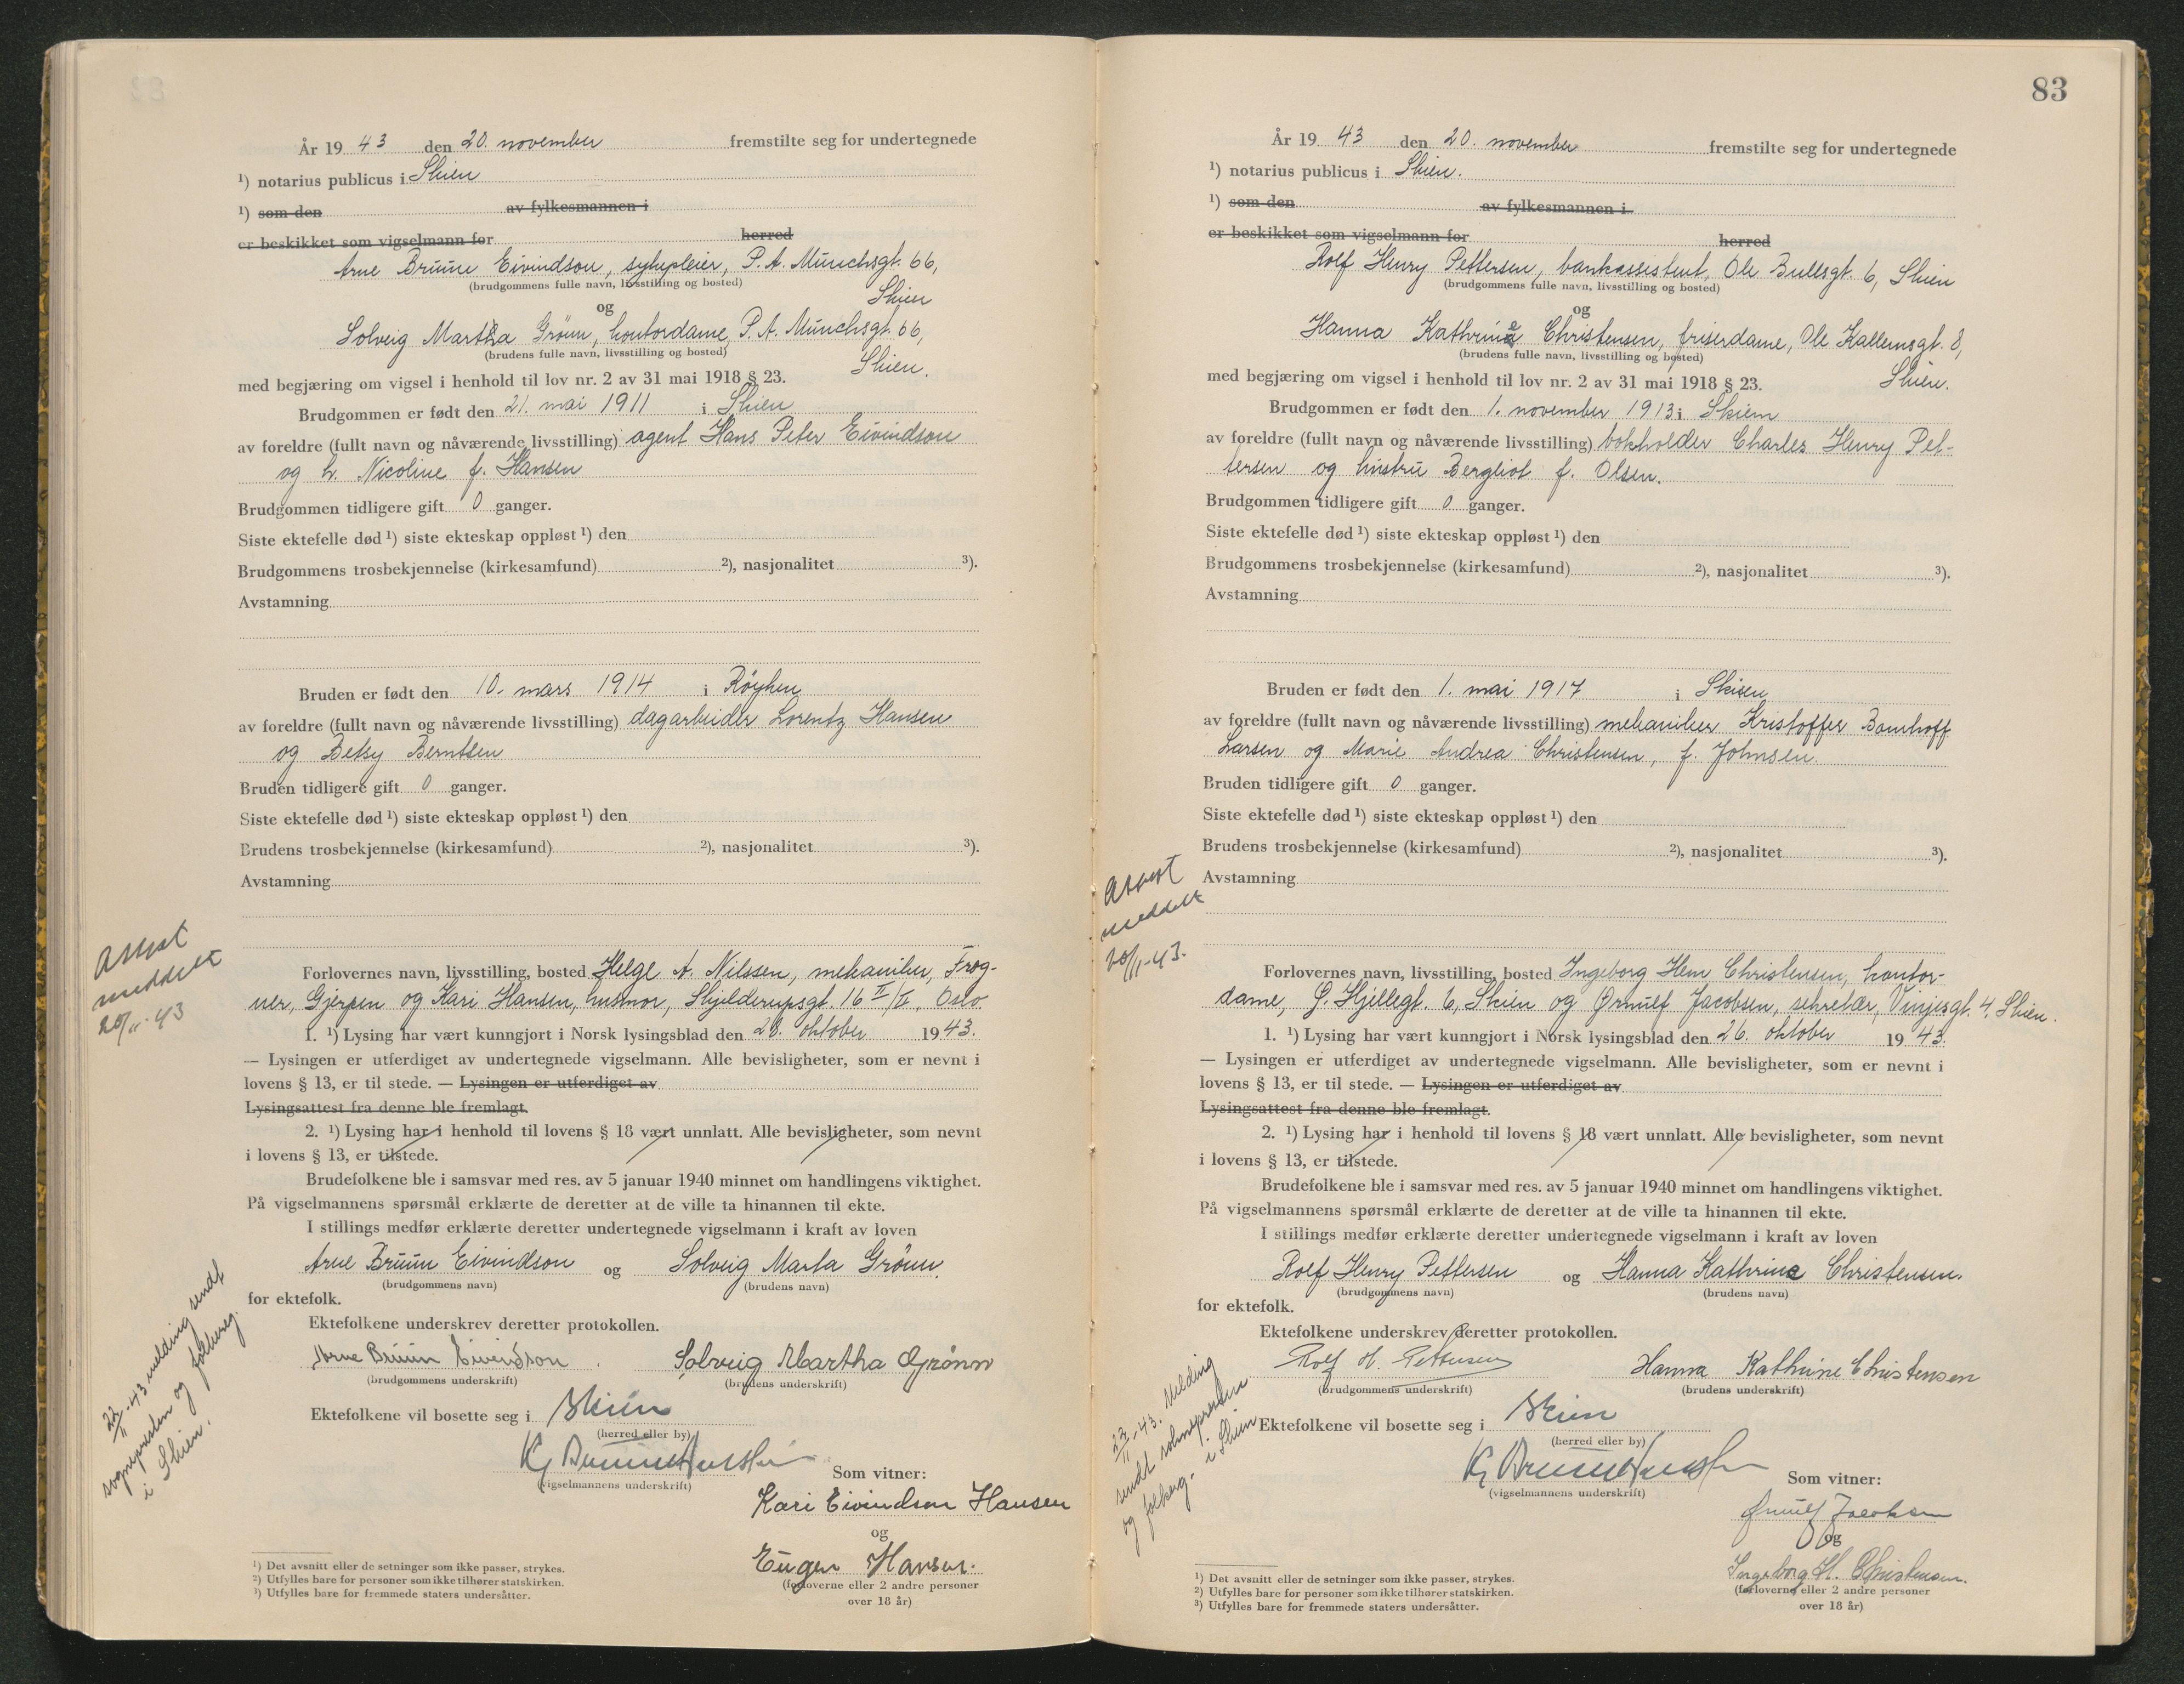 År 19 43 den 20. november fremstilte seg for undertegnede
¹) notarius publicus i Skien
¹) som den av fylkesmannen i
er beskikket som vigselmann for herred
Arne Bruun Eivindson, sykepleier, P. A. Munchsgt. 66,
(brudgommens fulle navn, livsstilling og bosted)
Skien
og
Solveig Martha Grönn, kontordame, P. A. Munchsgt. 66,
(brudens fulle navn, livsstilling og bosted)
Skien.
med begjæring om vigsel i henhold til lov nr. 2 av 31 mai 1918 § 23.
Brudgommen er født den 21. mai 1911 i Skien
av foreldre (fullt navn og nåværende livsstilling) agent Hans Peter Eivindson
og h. Nicoline f. Hansen
Brudgommen tidligere gift 0 ganger.
Siste ektefelle død ¹) siste ekteskap oppløst ¹) den
Brudgommens trosbekjennelse (kirkesamfund) ²), nasjonalitet ³).
Avstamning
Bruden er født den 10. mars 1914 i Røyken
av foreldre (fullt navn og nåværende livsstilling) dagarbeider Lorentz Hansen
og Betsy Berntsen
Bruden tidligere gift 0 ganger.
Siste ektefelle død ¹) siste ekteskap oppløst ¹) den
Brudens trosbekjennelse (kirkesamfund) ²), nasjonalitet ³).
Avstamning
Attest
meddelt
20/11-43
Forlovernes navn, livsstilling, bosted Helge A. Nilssen, mekaniker, Frog-
ner, Gjerpen og Kari Hansen, husmor, Skjelderupsgt. 16 II/II, Oslo.
1. ¹) Lysing har vært kunngjort i Norsk lysingsblad den 28. oktober 1943.
— Lysingen er utferdiget av undertegnede vigselmann. Alle bevisligheter, som er nevnt i
lovens § 13, er til stede. — Lysingen er utferdiget av
Lysingsattest fra denne ble fremlagt.
2. ¹) Lysing har i henhold til lovens § 18 vært unnlatt. Alle bevisligheter, som nevnt
i lovens § 13, er tilstede.
Brudefolkene ble i samsvar med res. av 5 januar 1940 minnet om handlingens viktighet.
På vigselmannens spørsmål erklærte de deretter at de ville ta hinannen til ekte.
I stillings medfør erklærte deretter undertegnede vigselmann i kraft av loven
Arne Bruun Eivindson og Solveig Marta Grönn.
(brudgommens navn) (brudens navn)
for ektefolk.
Ektefolkene underskrev deretter protokollen.
Arne Bruun Eivindson. Solveig Martha Grönn
(brudgommens underskrift) (brudens underskrift)
22/11-43 melding sendt
sognepresten og folkereg.
i Skien.
Ektefolkene vil bosette seg i Skien
(herred eller by)
(vigselmannens underskrift)
Som vitner:
Kari Eivindson Hansen
og
Eugen Hansen.
(forloverne eller 2 andre personer
over 18 år)
¹) Det avsnitt eller de setninger som ikke passer, strykes.
²) Utfylles bare for personer som ikke tilhører statskirken.
³) Utfylles bare for fremmede staters undersåtter.
83
År 19 43 den 20. november fremstilte seg for undertegnede
¹) notarius publicus i Skien.
¹) som den av fylkesmannen i
er beskikket som vigselmann for herred
Rolf Henry Pettersen, bankassistent, Ole Bullsgt. 6, Skien
(brudgommens fulle navn, livsstilling og bosted)
og
Hanna Kathrine Christensen, friserdame, Ole Kallemsgt. 8,
(brudens fulle navn, livsstilling og bosted)
Skien.
med begjæring om vigsel i henhold til lov nr. 2 av 31 mai 1918 § 23.
Brudgommen er født den 1. november 1913 i Skien
av foreldre (fullt navn og nåværende livsstilling) bokholder Charles Henry Pet-
tersen og hustru Bergliot f. Olsen.
Brudgommen tidligere gift 0 ganger.
Siste ektefelle død ¹) siste ekteskap oppløst ¹) den
Brudgommens trosbekjennelse (kirkesamfund) ²), nasjonalitet ³).
Avstamning
Bruden er født den 1. mai 1917 i Skien
av foreldre (fullt navn og nåværende livsstilling) mekaniker Kristoffer Bomhoff
Larsen og Marie Andrea Christensen, f. Johnsen.
Bruden tidligere gift 0 ganger.
Siste ektefelle død ¹) siste ekteskap oppløst ¹) den
Brudens trosbekjennelse (kirkesamfund) ²), nasjonalitet ³).
Avstamning
Attest
meddelt
20/11-43.
Forlovernes navn, livsstilling, bosted Ingeborg Hem Christensen, kontor-
dame, G. Hjellegt. 6, Skien og Ørnulf Jacobsen, sekretær, Vinjesgt. 4, Skien.
1. ¹) Lysing har vært kunngjort i Norsk lysingsblad den 26. oktober 1943.
— Lysingen er utferdiget av undertegnede vigselmann. Alle bevisligheter, som er nevnt i
lovens § 13, er til stede. — Lysingen er utferdiget av
Lysingsattest fra denne ble fremlagt.
2. ¹) Lysing har i henhold til lovens § 18 vært unnlatt. Alle bevisligheter, som nevnt
i lovens § 13, er tilstede.
Brudefolkene ble i samsvar med res. av 5 januar 1940 minnet om handlingens viktighet.
På vigselmannens spørsmål erklærte de deretter at de ville ta hinannen til ekte.
I stillings medfør erklærte deretter undertegnede vigselmann i kraft av loven
Rolf Henry Pettersen og Hanna Kathrine Christensen.
(brudgommens navn) (brudens navn)
for ektefolk.
Ektefolkene underskrev deretter protokollen.
Rolf H. Pettersen Hanna Kathrine Christensen
(brudgommens underskrift) (brudens underskrift)
22/11-43. Melding
sendt sognepresten
og folkereg. i Skien
Ektefolkene vil bosette seg i Skien
(herred eller by)
(vigselmannens underskrift)
Som vitner:
Ørnulf Jacobsen
og
Ingeborg H. Christensen.
(forloverne eller 2 andre personer
over 18 år)
¹) Det avsnitt eller de setninger som ikke passer, strykes.
²) Utfylles bare for personer som ikke tilhører statskirken.
³) Utfylles bare for fremmede staters undersåtter.